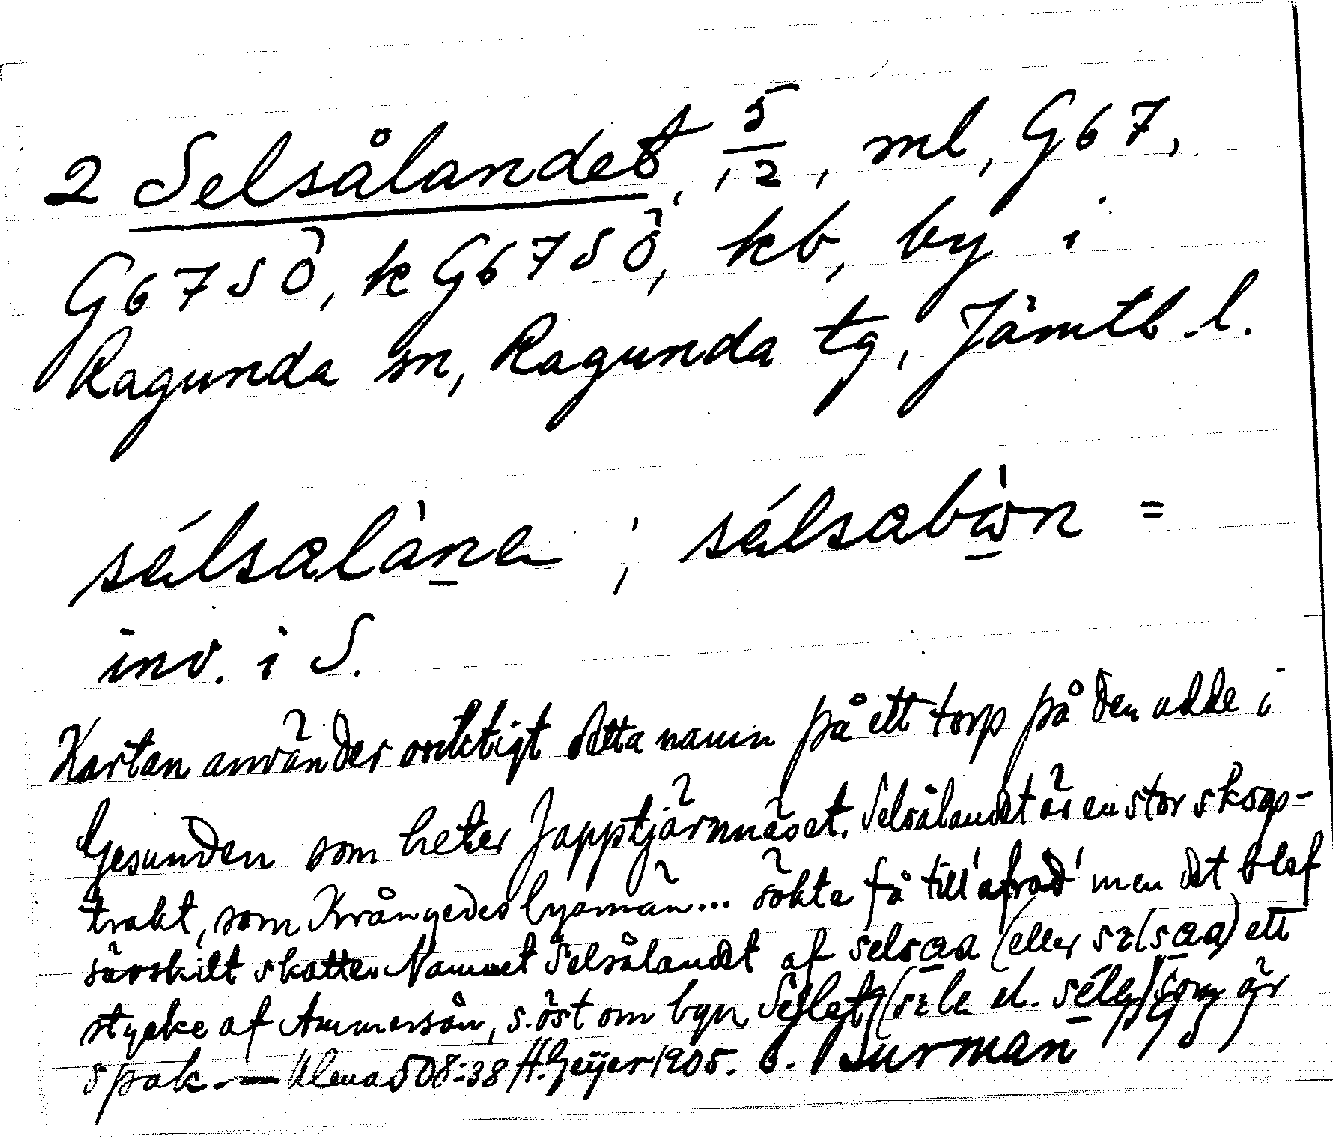 2 Selsålandet, 5/12, ml, G67,
G67SÖ, kG67SÖ, kb, by i
Ragunda sn, Ragunda tg, Jämtl. l.
sélsalàna ; sélsabò̱n =
inv. i S.
Kartan använder oriktigt detta namn på ett torp på den udde i
Gesunden som heter Japptjärnnäset. Selsålandet är en stor skogs-
trakt, som Krångede byamän... sökte få till 'afrad' men det blef
särskilt skatte. Namnet Selsålandet af selsaa (eller sælsaa) ett
stycke af Ammerån, s. öst om byn Selet som är
spak. — Ulma 508:38 H. Geijer 1905. O. Burman